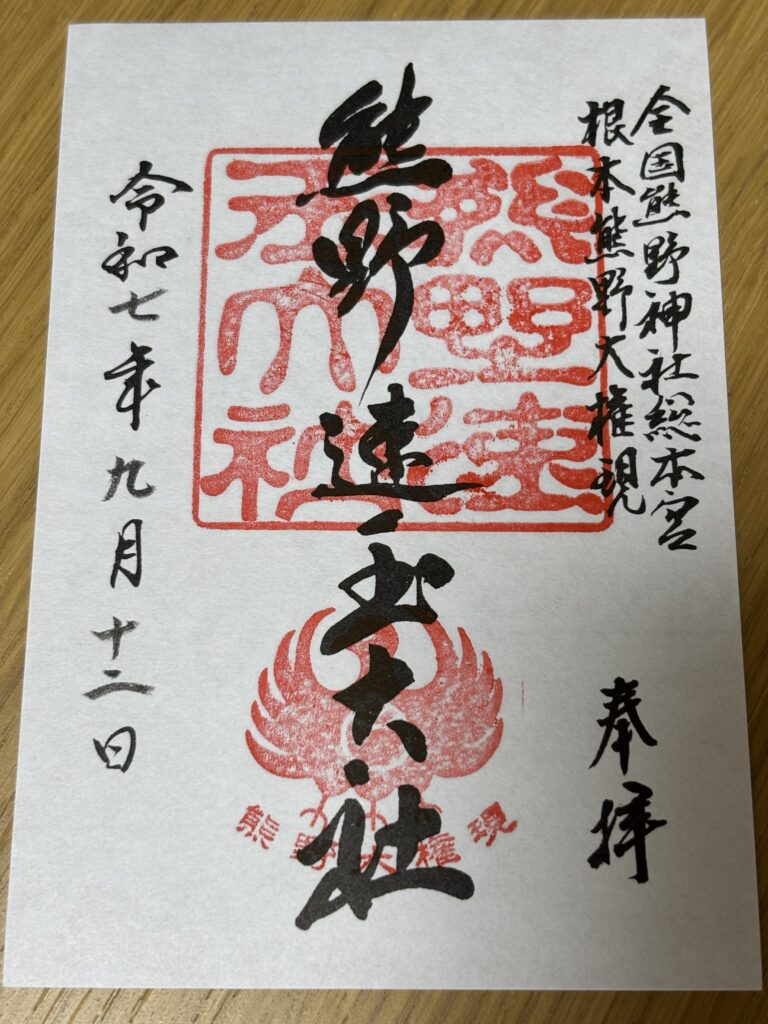 全国熊野神社総本宮
根本熊野大権現
奉拝
熊野速玉大社
熊野速玉大社
熊野大権現
令和七年九月十二日